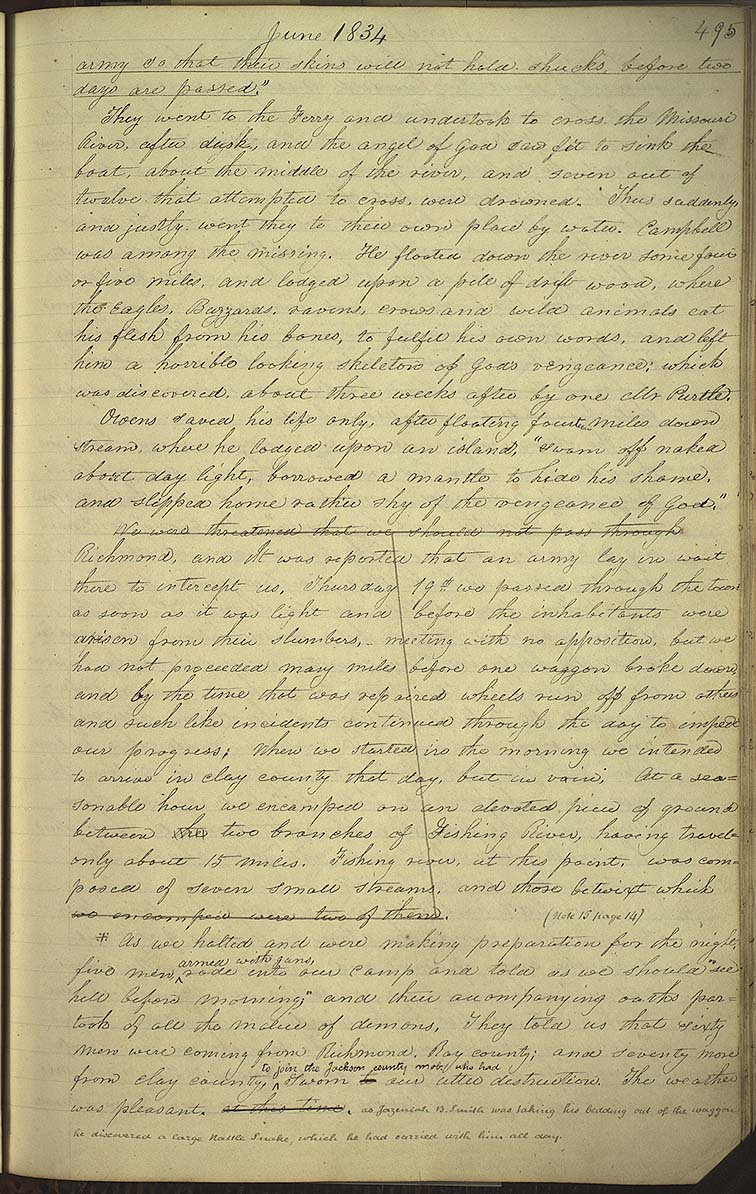 June 1834
495
army so that their skins will not hold shucks, before two
days are passed."
They went to the Ferry and undertook to cross the Missouri
River, after dusk, and the angel of God saw fit to sink the
boat, about the middle of the river, and seven out of
twelve that attempted to cross, were drowned. Thus suddenly
and justly went they to their own place by water. Campbell
was among the missing. He floated down the river some four
or five miles, and lodged upon a pile of drift wood, where
the Eagles, Buzzards, ravens, crows and wild animals eat
his flesh from his bones, to fulfil his own words, and left
him a horrible looking skeleton of Gods vengeance; which
was discovered, about three weeks after by one Mr Purtle.
Owens saved his life only, after floating four miles down
stream, where he lodged upon an island, "swam off naked
about day light, borrowed a mantle to hide his shame,
and slipped home rather shy of the vengeance of God."
We were threatened that we should not pass through
Richmond, and It was reported that an army lay in wait
there to intercept us, Thursday 19th we passed through the town
as soon as it was light and before the inhabitants were
arisen from their slumbers, meeting with no opposition, but we
had not proceeded many miles before one waggon broke down,
and by the time that was repaired wheels run off from others
and such like incidents continued through the day to impede
our progress; When we started in the morning we intended
to arrive in clay county that day, but in vain; At a sea=
sonable hour we encamped on an elevated piece of ground
between the two branches of Fishing River, having travel=
only about 15 miles. Fishing river, at this point, was com=
posed of seven small streams, and those betwixt which
we encamped were two of them. (Note 15 page 14)
* As we halted and were making preparation for the night,
armed with guns,
five men, ^ rode into our camp and told us we should "see
hell before morning;" and their accompanying oaths par=
took of all the malice of demons. They told us that sixty
men were coming from Richmond, Ray county; and seventy more
to join the Jackson county mob, who had
from clay county, ^ sworn to our utter destruction. The weather
was pleasant. at this time. as Jazeniah B. Smith was taking his bedding out of the waggon
he discovered a large Rattle Snake, which he had carried with him all day.